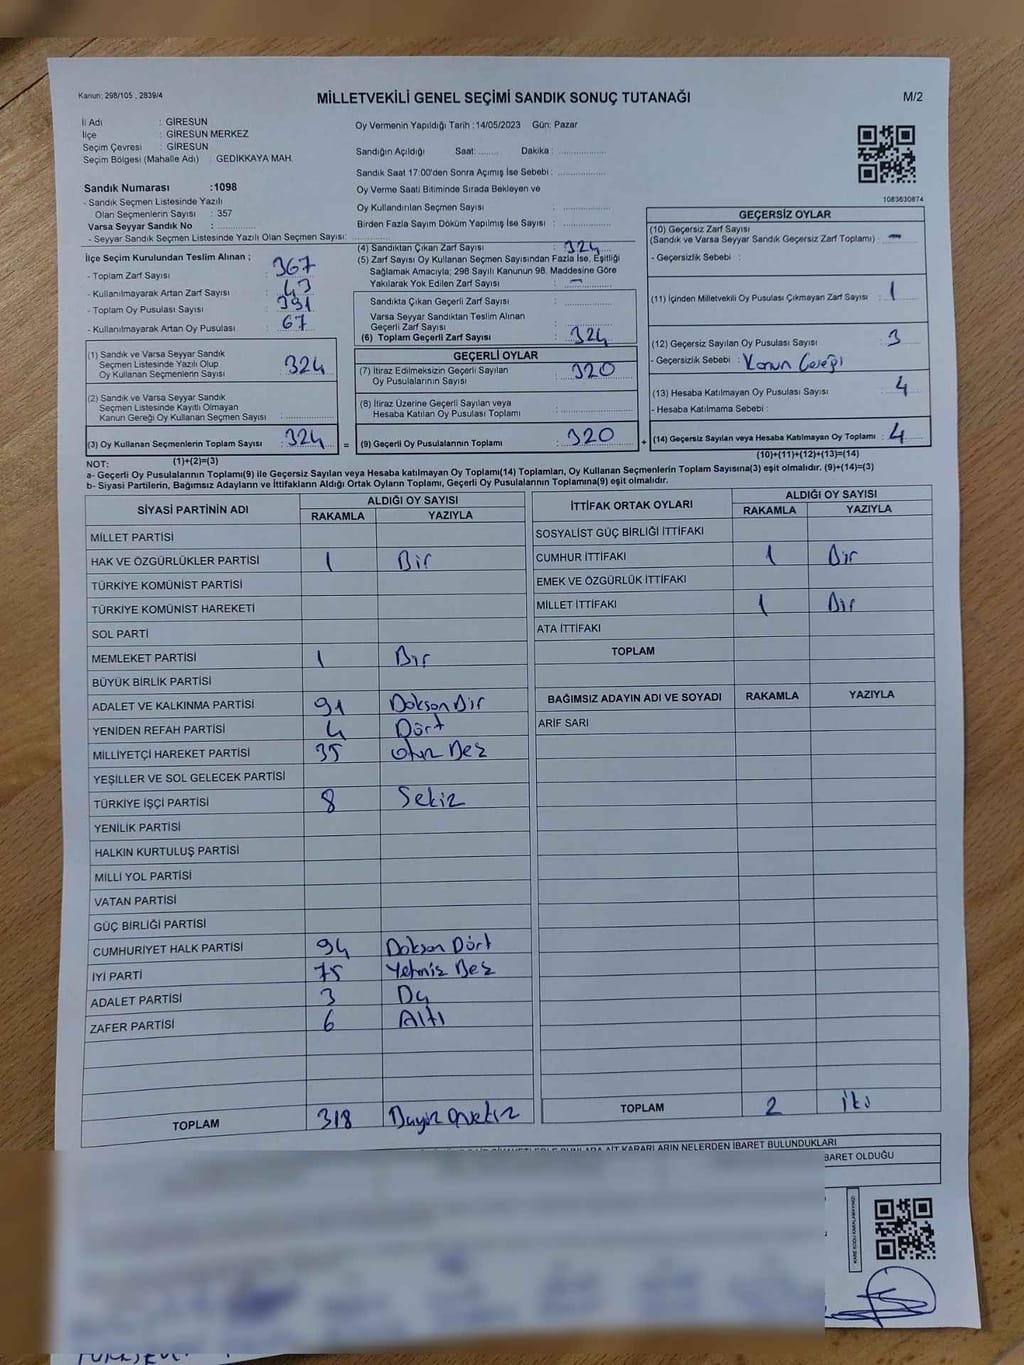 Kanun: 298/105 , 2839/4
MİLLETVEKİLİ GENEL SEÇİMİ SANDIK SONUÇ TUTANAĞI
M/2
İl Adı : GİRESUN
İlçe : GİRESUN MERKEZ
Seçim Çevresi : GİRESUN
Seçim Bölgesi (Mahalle Adı) : GEDİKKAYA MAH.
Oy Vermenin Yapıldığı Tarih :14/05/2023 Gün: Pazar
Sandığın Açıldığı Saat: ........ Dakika : ....................
Sandık Saat 17:00'den Sonra Açımış İse Sebebi : ....................
Oy Verme Saati Bitiminde Sırada Bekleyen ve
Oy Kullandırılan Seçmen Sayısı : ....................
Birden Fazla Sayım Döküm Yapılmış İse Sayısı : ....................
1083630874
Sandık Numarası :1098
- Sandık Seçmen Listesinde Yazılı
Olan Seçmenlerin Sayısı : 357
Varsa Seyyar Sandık No : ....................
- Seyyar Sandık Seçmen Listesinde Yazılı Olan Seçmen Sayısı: ....................
İlçe Seçim Kurulundan Teslim Alınan ;
- Toplam Zarf Sayısı : 367
- Kullanılmayarak Artan Zarf Sayısı : 43
- Toplam Oy Pusulası Sayısı : 391
- Kullanılmayarak Artan Oy Pusulası : 67
(1) Sandık ve Varsa Seyyar Sandık
Seçmen Listesinde Yazılı Olup
Oy Kullanan Seçmenlerin Sayısı : 324
(2) Sandık ve Varsa Seyyar Sandık
Seçmen Listesinde Kayıtlı Olmayan
Kanun Gereği Oy Kullanan Seçmen Sayısı : ....................
(3) Oy Kullanan Seçmenlerin Toplam Sayısı : 324
(1)+(2)=(3)
(4) Sandıktan Çıkan Zarf Sayısı : 324
(5) Zarf Sayısı Oy Kullanan Seçmen Sayısından Fazla İse, Eşitliği
Sağlamak Amacıyla; 298 Sayılı Kanunun 98. Maddesine Göre
Yakılarak Yok Edilen Zarf Sayısı : -
Sandıkta Çıkan Geçerli Zarf Sayısı : ....................
Varsa Seyyar Sandıktan Teslim Alınan
Geçerli Zarf Sayısı : ....................
(6) Toplam Geçerli Zarf Sayısı : 324
GEÇERLİ OYLAR
(7) İtiraz Edilmeksizin Geçerli Sayılan
Oy Pusulalarının Sayısı : 320
(8) İtiraz Üzerine Geçerli Sayılan veya
Hesaba Katılan Oy Pusulası Toplamı : ....................
= (9) Geçerli Oy Pusulalarının Toplamı : 320
GEÇERSİZ OYLAR
(10) Geçersiz Zarf Sayısı
(Sandık ve Varsa Seyyar Sandık Geçersiz Zarf Toplamı) : -
- Geçersizlik Sebebi :
(11) İçinden Milletvekili Oy Pusulası Çıkmayan Zarf Sayısı : 1
(12) Geçersiz Sayılan Oy Pusulası Sayısı : 3
- Geçersizlik Sebebi : Kanun Gereği
(13) Hesaba Katılmayan Oy Pusulası Sayısı : 4
- Hesaba Katılmama Sebebi :
+ (14) Geçersiz Sayılan veya Hesaba Katılmayan Oy Toplamı : 4
(10)+(11)+(12)+(13)=(14)
NOT:
a- Geçerli Oy Pusulalarının Toplamı(9) ile Geçersiz Sayılan veya Hesaba katılmayan Oy Toplamı(14) Toplamları, Oy Kullanan Seçmenlerin Toplam Sayısına(3) eşit olmalıdır. (9)+(14)=(3)
b- Siyasi Partilerin, Bağımsız Adayların ve İttifakların Aldığı Ortak Oyların Toplamı, Geçerli Oy Pusulalarının Toplamına(9) eşit olmalıdır.
SİYASİ PARTİNİN ADI ALDIĞI OY SAYISI
RAKAMLA YAZIYLA
MİLLET PARTİSİ
HAK VE ÖZGÜRLÜKLER PARTİSİ 1 Bir
TÜRKİYE KOMÜNİST PARTİSİ
TÜRKİYE KOMÜNİST HAREKETİ
SOL PARTİ
MEMLEKET PARTİSİ 1 Bir
BÜYÜK BİRLİK PARTİSİ
ADALET VE KALKINMA PARTİSİ 91 Doksan Bir
YENİDEN REFAH PARTİSİ 4 Dört
MİLLİYETÇİ HAREKET PARTİSİ 35 otuz Beş
YEŞİLLER VE SOL GELECEK PARTİSİ
TÜRKİYE İŞÇİ PARTİSİ 8 Sekiz
YENİLİK PARTİSİ
HALKIN KURTULUŞ PARTİSİ
MİLLİ YOL PARTİSİ
VATAN PARTİSİ
GÜÇ BİRLİĞİ PARTİSİ
CUMHURİYET HALK PARTİSİ 94 Doksan Dört
İYİ PARTİ 75 Yetmiş Beş
ADALET PARTİSİ 3 Üç
ZAFER PARTİSİ 6 Altı
TOPLAM 318 Üçyüz onsekiz
İTTİFAK ORTAK OYLARI ALDIĞI OY SAYISI
RAKAMLA YAZIYLA
SOSYALİST GÜÇ BİRLİĞİ İTTİFAKI
CUMHUR İTTİFAKI 1 Bir
EMEK VE ÖZGÜRLÜK İTTİFAKI
MİLLET İTTİFAKI 1 Bir
ATA İTTİFAKI
TOPLAM
BAĞIMSIZ ADAYIN ADI VE SOYADI RAKAMLA YAZIYLA
ARİF SARI
TOPLAM 2 İki
KARARLARIN NELERDEN İBARET BULUNDUKLARI
İBARET OLDUĞU